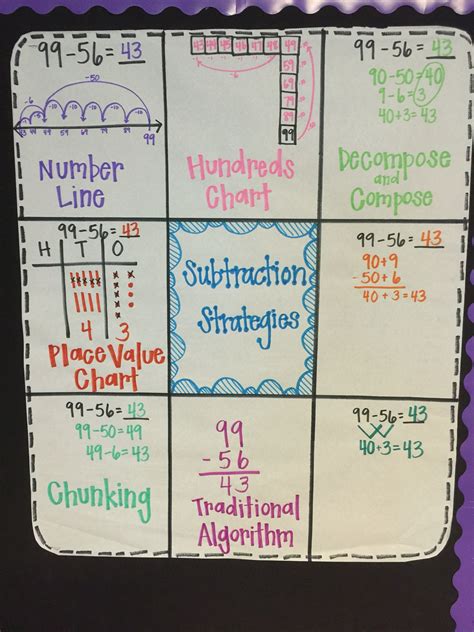 99-56= 43
-50
-6 -10 -10 -10 -10 -10
43 49 59 69 79 89 99
Number
Line
43 44 45 46 47 48 49
59
69
79
89
99
Hundreds
Chart
99-56= 43
90-50=40
9-6=3
40+3=43
Decompose
and
Compose
99-56=43
H T O
4 3
Place Value
Chart
Subtraction
Strategies
99-56= 43
90+9
- 50+6
40+3=43
99-56= 43
99-50=49
49-6=43
Chunking
99
-56
43
Traditional
Algorithm
99-56= 43
40+3=43